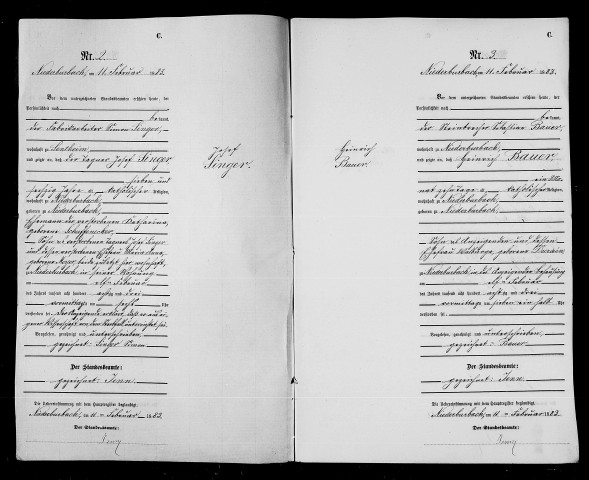 C.
Nr. 2
Niederburbach, am 11. Februar 1883.
Vor dem unterzeichneten Standesbeamten erschien heute, der
Persönlichkeit nach
be kannt,
der Fabrikarbeiter Simon Singer,
wohnhaft in
und zeigte an, daß der Tagner Josef Singer
sieben und
sechzig Jahre alt, katholischer Religion,
wohnhaft in Niederburbach,
geboren zu Niederburbach,
Ehemann der verstorbenen Katharina,
geborene
Sohn des verstorbenen Tagners José Singer
und dessen verstorbenen Ehefrau Magdalena,
geborene
zu Niederburbach in seiner Wohnung
am elf Februar
des Jahres tausend acht hundert achtzig und drei
vormittags um sechs Uhr
verstorben sei.
Vorgelesen, genehmigt und unterschrieben
gezeichnet: Singer Simon
Der Standesbeamte:
gezeichnet: Jenn
Die Uebereinstimmung mit dem Hauptregister beglaubigt
Niederburbach, am 11. Februar 1883.
Der Standesbeamte:
Jenny
Josef
Singer.
C.
Nr. 3.
Niederburbach, am 11. Februar 1883.
Vor dem unterzeichneten Standesbeamten erschien heute, der
Persönlichkeit nach
be kannt,
der Sebastian Bauer,
wohnhaft in Niederburbach,
und zeigte an, daß Heinrich Bauer
ein
alt, katholischer Religion,
wohnhaft in Niederburbach,
geboren zu Niederburbach,
Sohn des Anzeigenden und dessen
Ehefrau Walburga, geborene
zu Niederburbach in des Anzeigenden Behausung
am elf Februar
des Jahres tausend acht hundert achtzig und drei
vormittags um sieben ein halb Uhr
verstorben sei.
Vorgelesen, genehmigt und unterschrieben,
gezeichnet: Bauer
Der Standesbeamte:
gezeichnet: Jenn
Die Uebereinstimmung mit dem Hauptregister beglaubigt
Niederburbach, am 11. Februar 1883.
Der Standesbeamte:
Jenny
Heinrich
Bauer.